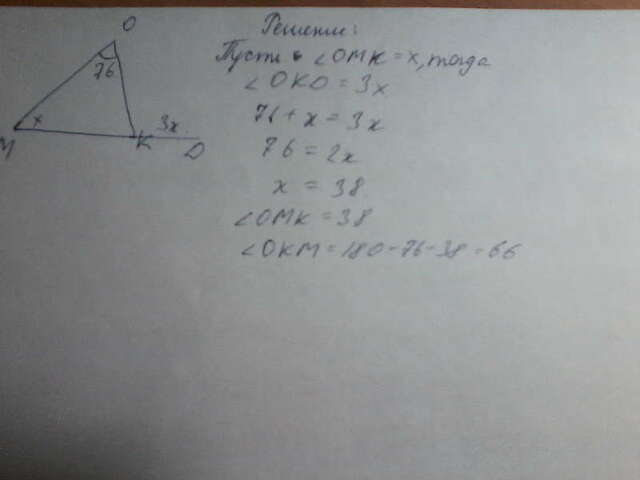 O
76
M x K 3x D
Решение:
Пусть ∠OMK = x, тогда
∠OKD = 3x
76 + x = 3x
76 = 2x
x = 38
∠OMK = 38
∠OKM = 180 - 76 - 38 = 66